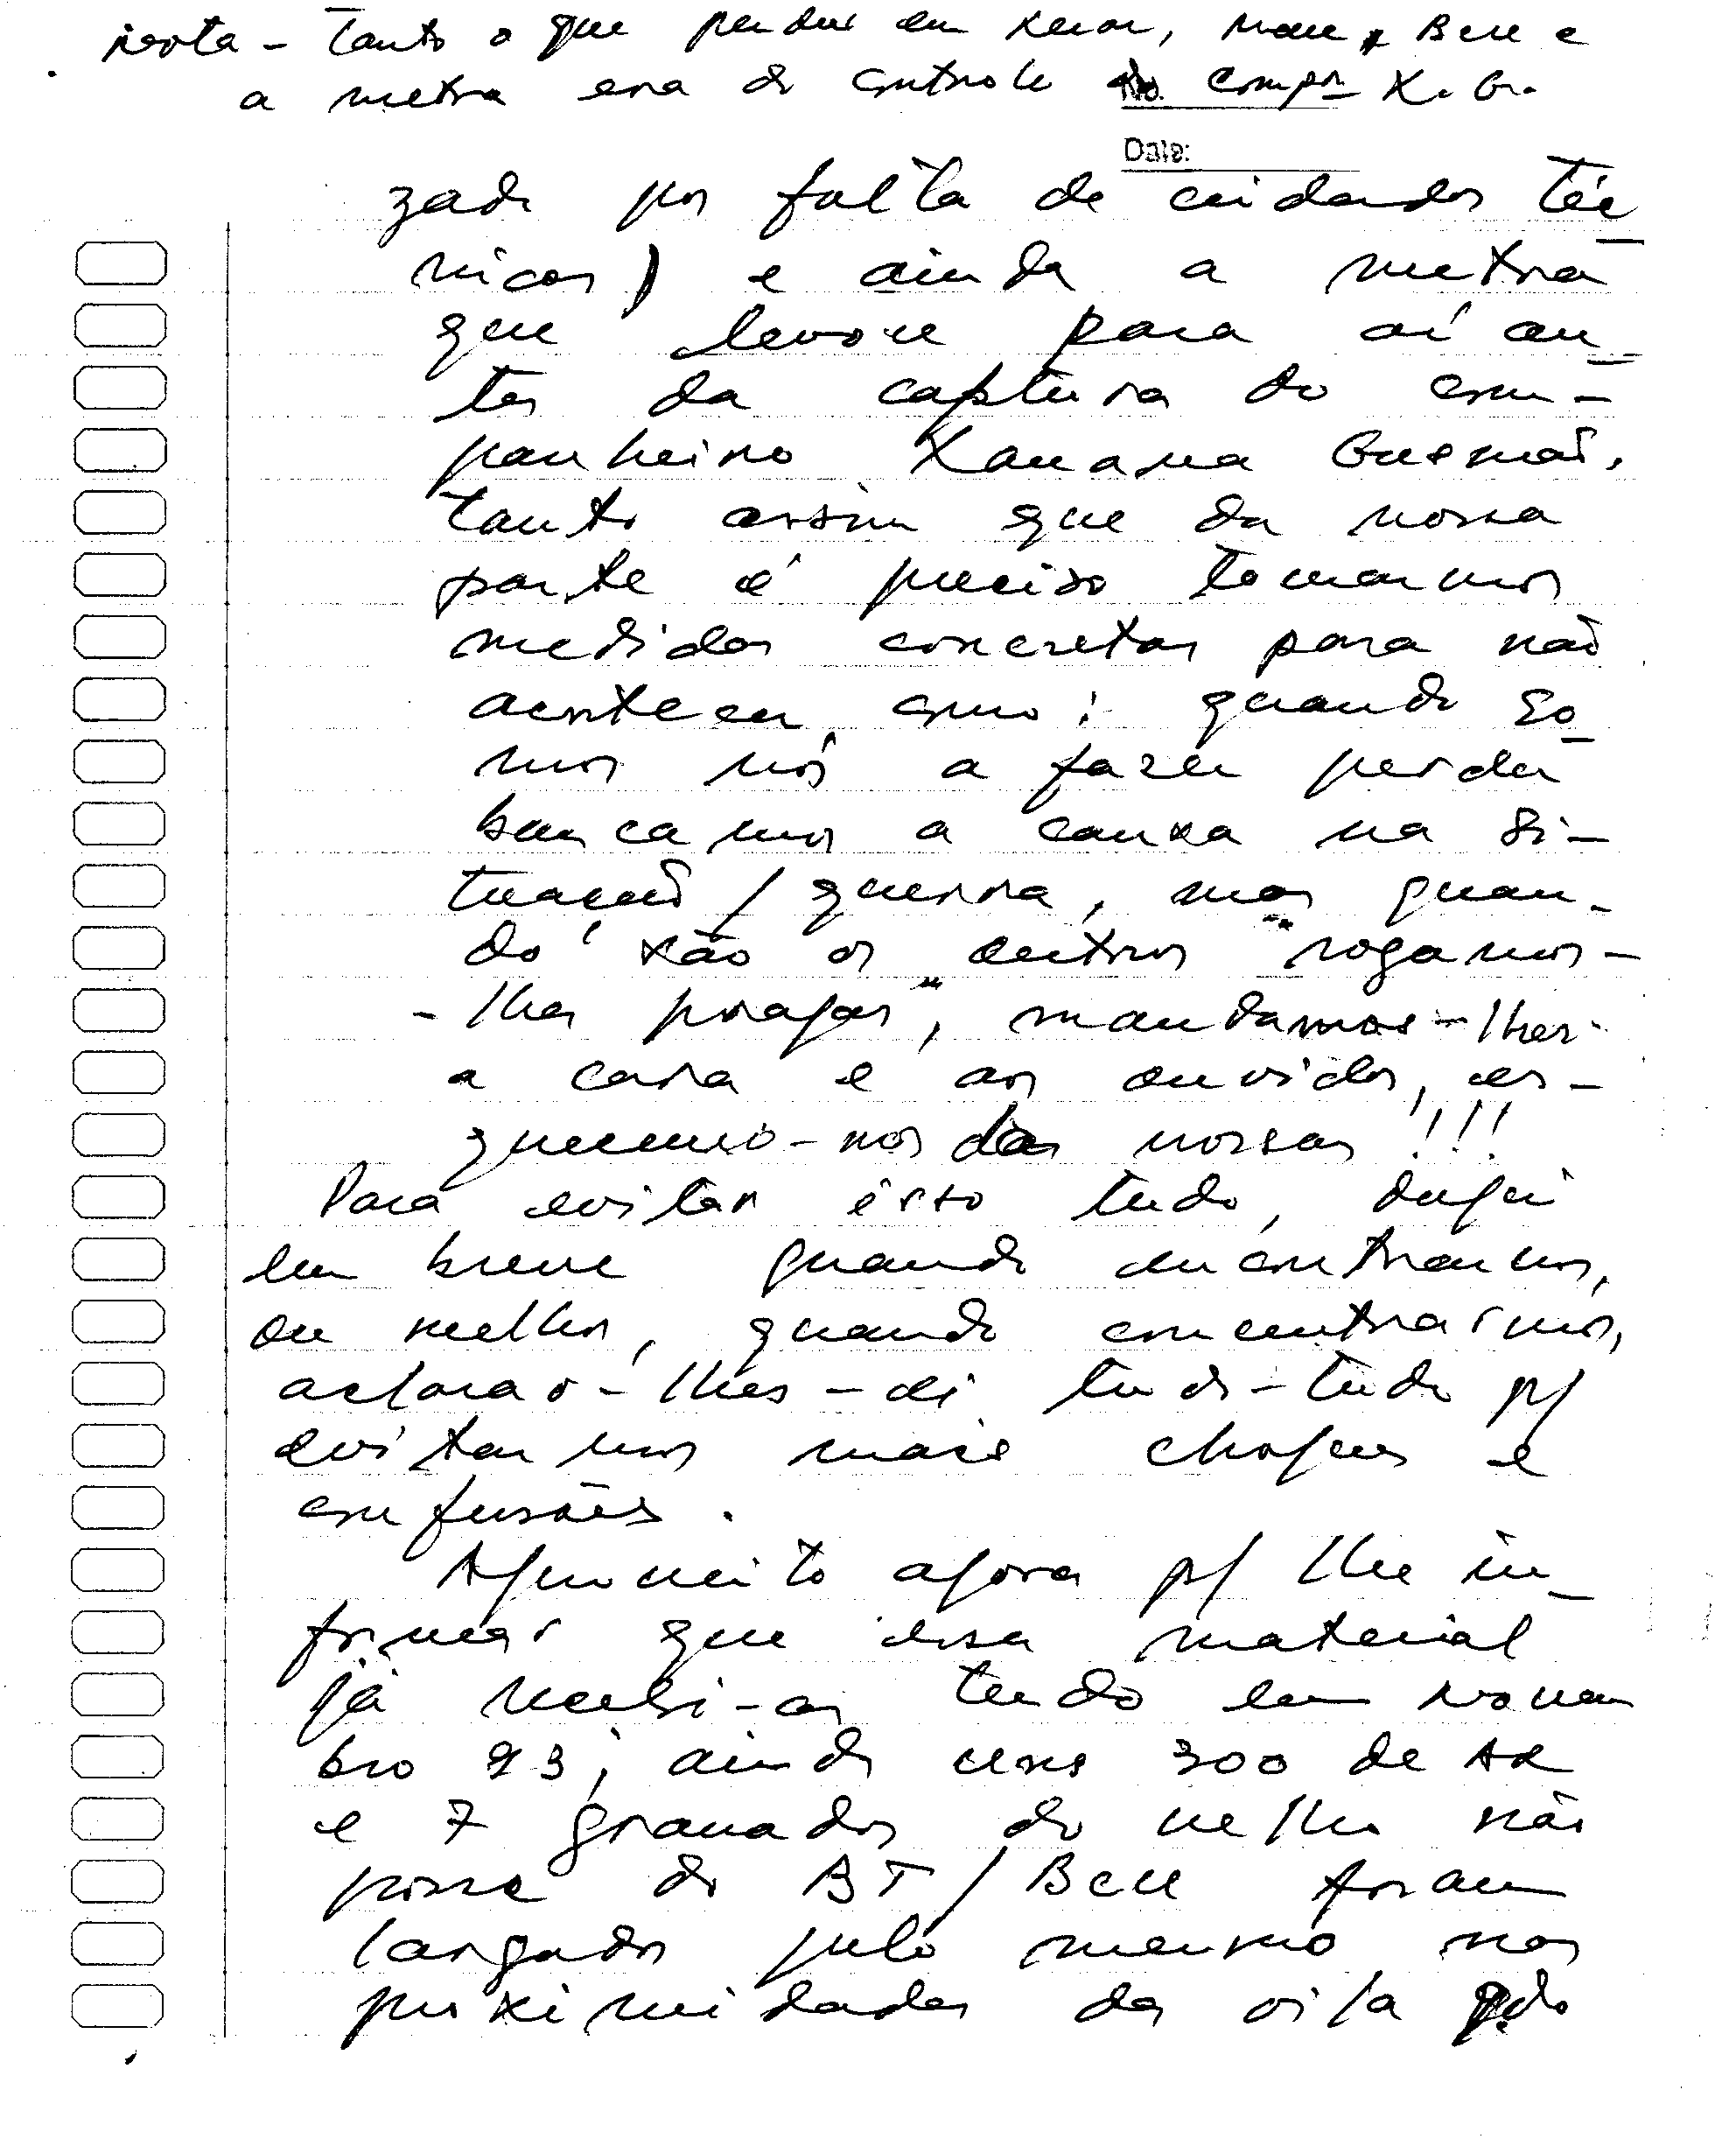 nota - Tanto o que perdeu em Kener, Mau, Bere e
a metra era do controle do compº X. G.
No.
Date:
zado por falta de cuidados téc
nicos) e ainda a metra
que levou para aí an
tes da captura do com-
panheiro Xanana Gusmão.
Tanto assim que da nossa
parte é preciso tomarmos
medidas concretas para não
acontecer como: quando so
mos nós a fazer perder
buscamos a causa na si-
tuação / guerra, mas quan-
do são os outros "rogamos-
-lhes pragas", mandamos-lhes
a cara e os ouvidos, es-
quecemo-nos das nossas !!!
Para evitar isso tudo, daqui
em breve quando encontrarmos,
ou melhor, quando concentrarmos,
aclarar-lhes-ei tudo-tudo p/
evitarmos mais choques e
confusões.
Aproveito agora p/ lhe in
formar que desse material
já recebi-as tudo em Novem
bro 93; ainda uns 300 de AR
e 7 granadas do velho não
posse do BT / Bere foram
largados pelo mesmo nas
proximidades da vila pdo